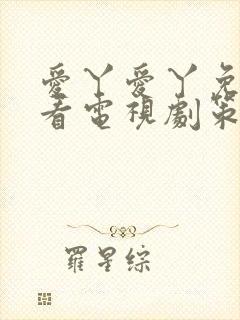 愛丫愛丫免
看電視劇策
羅星綜